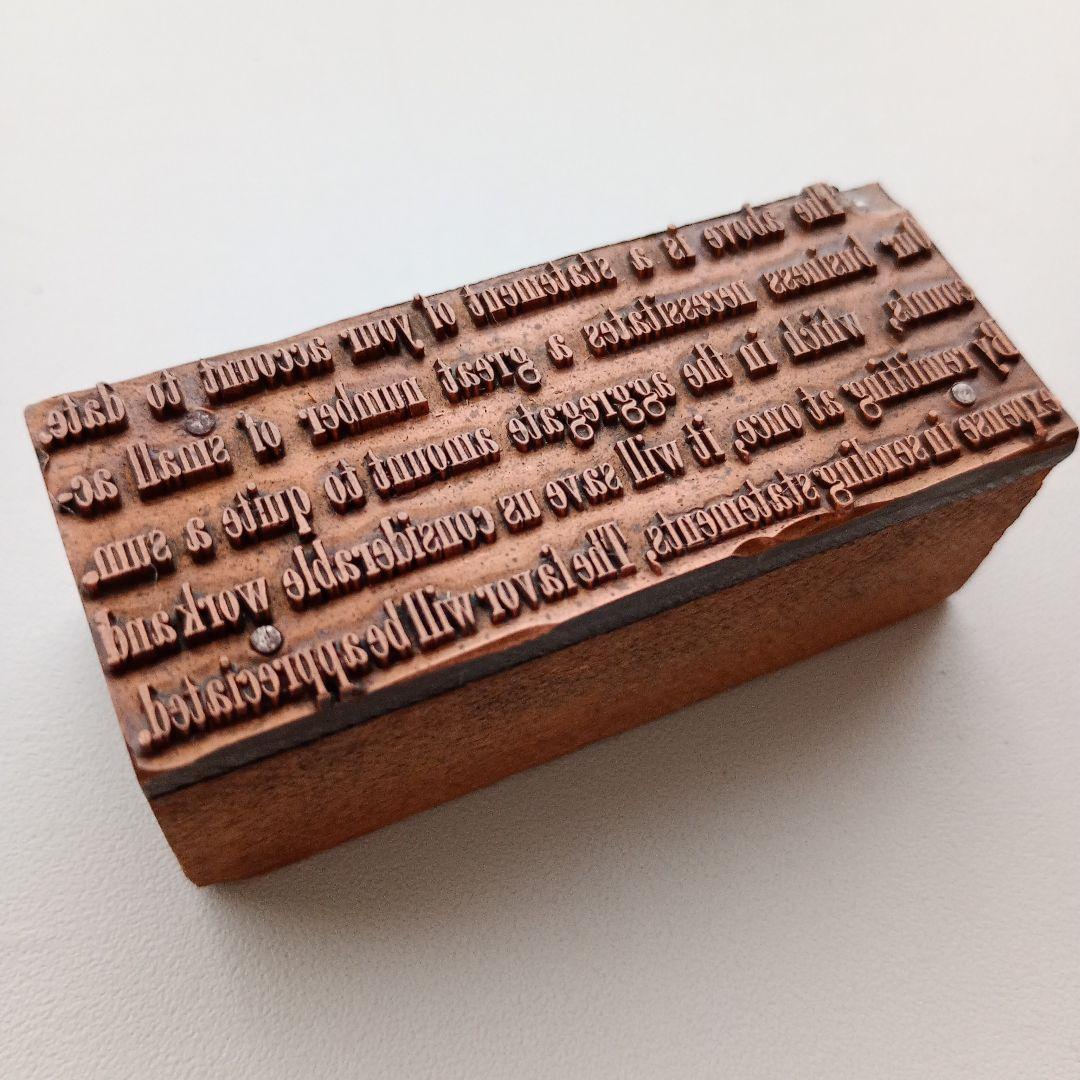 The above is a statement of your account to date.
Our business necessitates a great number of small ac-
counts, which in the aggregate amount to quite a sum.
By remitting at once, it will save us considerable work and
expense in sending statements, The favor will be appreciated.